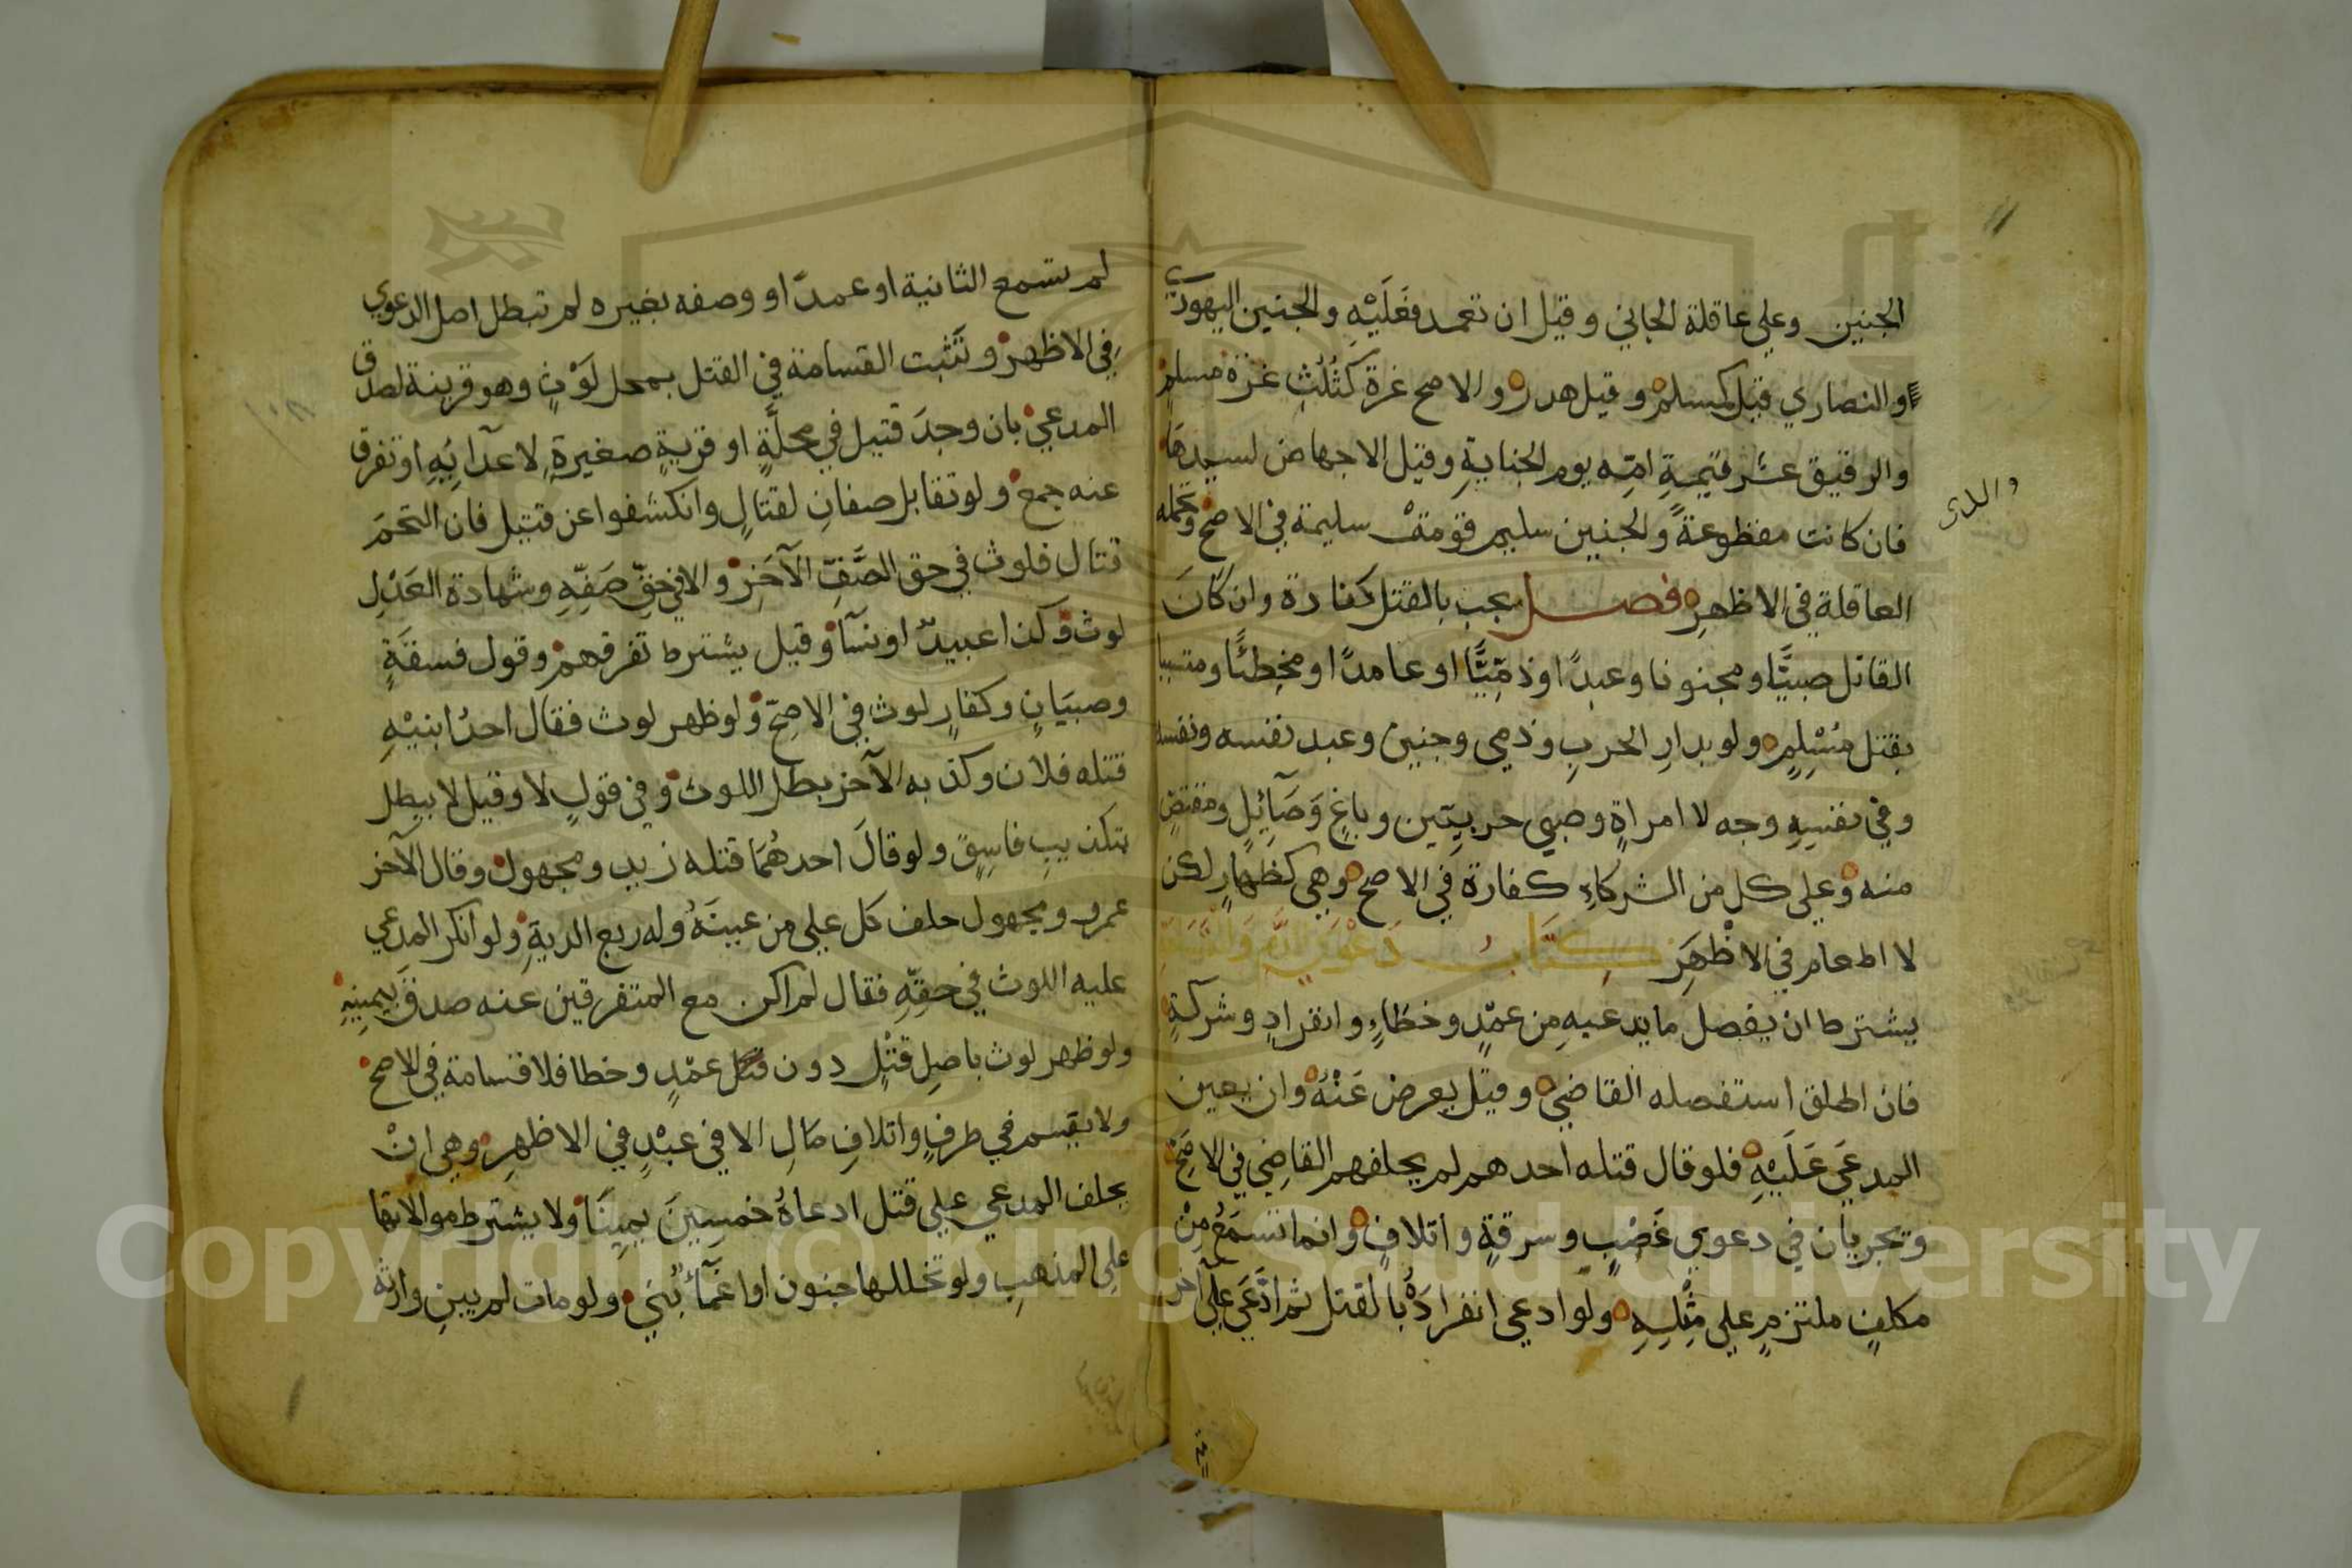 الجنين وعلي عاقلة الجاني وقيل ان تعمد فعَلَيْهِ والجنين اليهودي
والنصاري قيل كمسلم وقيل هدر والاصح غرة كثُلُثِ غرة مسلمٍ
والرقيق عشر قيمةِ امّه يوم الجنايةِ وقيل الاجهاض لسيدهَا
فان كانت مقطوعةً والجنين سليم قومت سليمة في الاصح وتحمله
العاقلة في الاظهرِ فصل يجب بالقتل كفارة وان كَانَ
القاتل صبيًّا ومجنونا وعبدًا وذمِّيًّا وعامدًا ومخطئًا ومتسببا
بقتل مُسْلِمٍ ولو بدارِ الحربِ وذمي وجنين وعبد نفسه ونفسه
وفي نفسِهِ وجه لا امراةٍ وصبي حربيّين وباغٍ وَصَآئِلٍ ومقتصٍّ
منه وعلي كل من الشركاءِ كفارة في الاصح وهي كظهارٍ لكن
لا اطعام في الاظْهَرِ كِتَابُ دَعْوَي الدَّمِ وَالْقَسَامَةِ
يشترط ان يفصل ما يدعيهِ من عمْدٍ وخطاءٍ وانفرادٍ وشركةٍ
فان اطلق استفصله القاضي وقيل يعرض عَنْهُ وان يعين
المدعَي عَلَيْهِ فلو قال قتله احدهم لم يحلفهم القاضِي في الاصَحِّ
وتجريان في دعوي غَصْبٍ وسرقةٍ واتلافٍ وانما تسمَعُ مِنْ
مكلفٍ ملتزمٍ علي مِثْلِهِ ولو ادعي انفرادَهُ بالقتل ثم ادَّعَي علي آخر
والذي
لم تسمع الثانية او عمدًا ووصفه بغيره لم تبطل اصل الدعوي
في الاظهر وتَثْبت القسامة في القتل بمحل لَوْثٍ وهو قرينة لصدق
المدعي بان وجِدَ قتيل في محلَّةٍ او قريةٍ صغيرةٍ لاعدآئِهِ او تفرق
عنه جمع ولو تقابل صفانِ لقتالٍ وانكشفوا عن قتيل فان التحمَ
قتال فلوث في حق الصَّفِّ الآخَرِ والا في حقِّ صَفِّهِ وشهادة العَدْلِ
لوث وكذا عبيدٌ او نسآ وقيل يشترط تفرقهم وقول فسقَةٍ
وصبيَانٍ وكفارٍ لوث في الاصحّ ولو ظهر لوث فقال احدُ ابنيْهِ
قتله فلان وكذبه الآخر بطل اللوث وفي قولٍ لا وقيل لا يبطل
بتكذيبِ فاسِقٍ ولو قالَ احدهُمَا قتله زيد ومجهول وقال الآخر
عمرو ومجهول حلف كل علي من عينَهُ وله ربع الديةِ ولو انكر المدعي
عليه اللوث في حقِّهِ فقال لم اكن مع المتفرقين عنه صدقَ بيمينِهِ
ولو ظهر لوث باصِلِ قتْلٍ دون قتل عمْدٍ وخطا فلا قسامة في الاصح
ولا يقسم في طرفٍ واتلافِ مَالِ الا في عبْدٍ في الاظهرِ وهي انْ
يحلف المدعي علي قتل ادعاهُ خمسِينَ يمينًا ولا يشترط موالاتها
علي المذهبِ ولو تخللها جنون او اغمآءٌ بُنِيَ ولو مات لم يبنِ وارثه